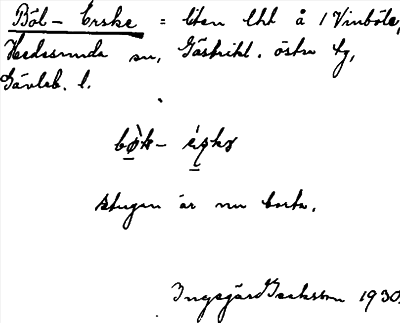 Böl - Erske = liten lht å 1 Vinböle,
Hedesunda sn, Gästrikl. östra tg,
Gävleb. l.
stugan är nu borta.
Ingegärd Isaksson 1930.